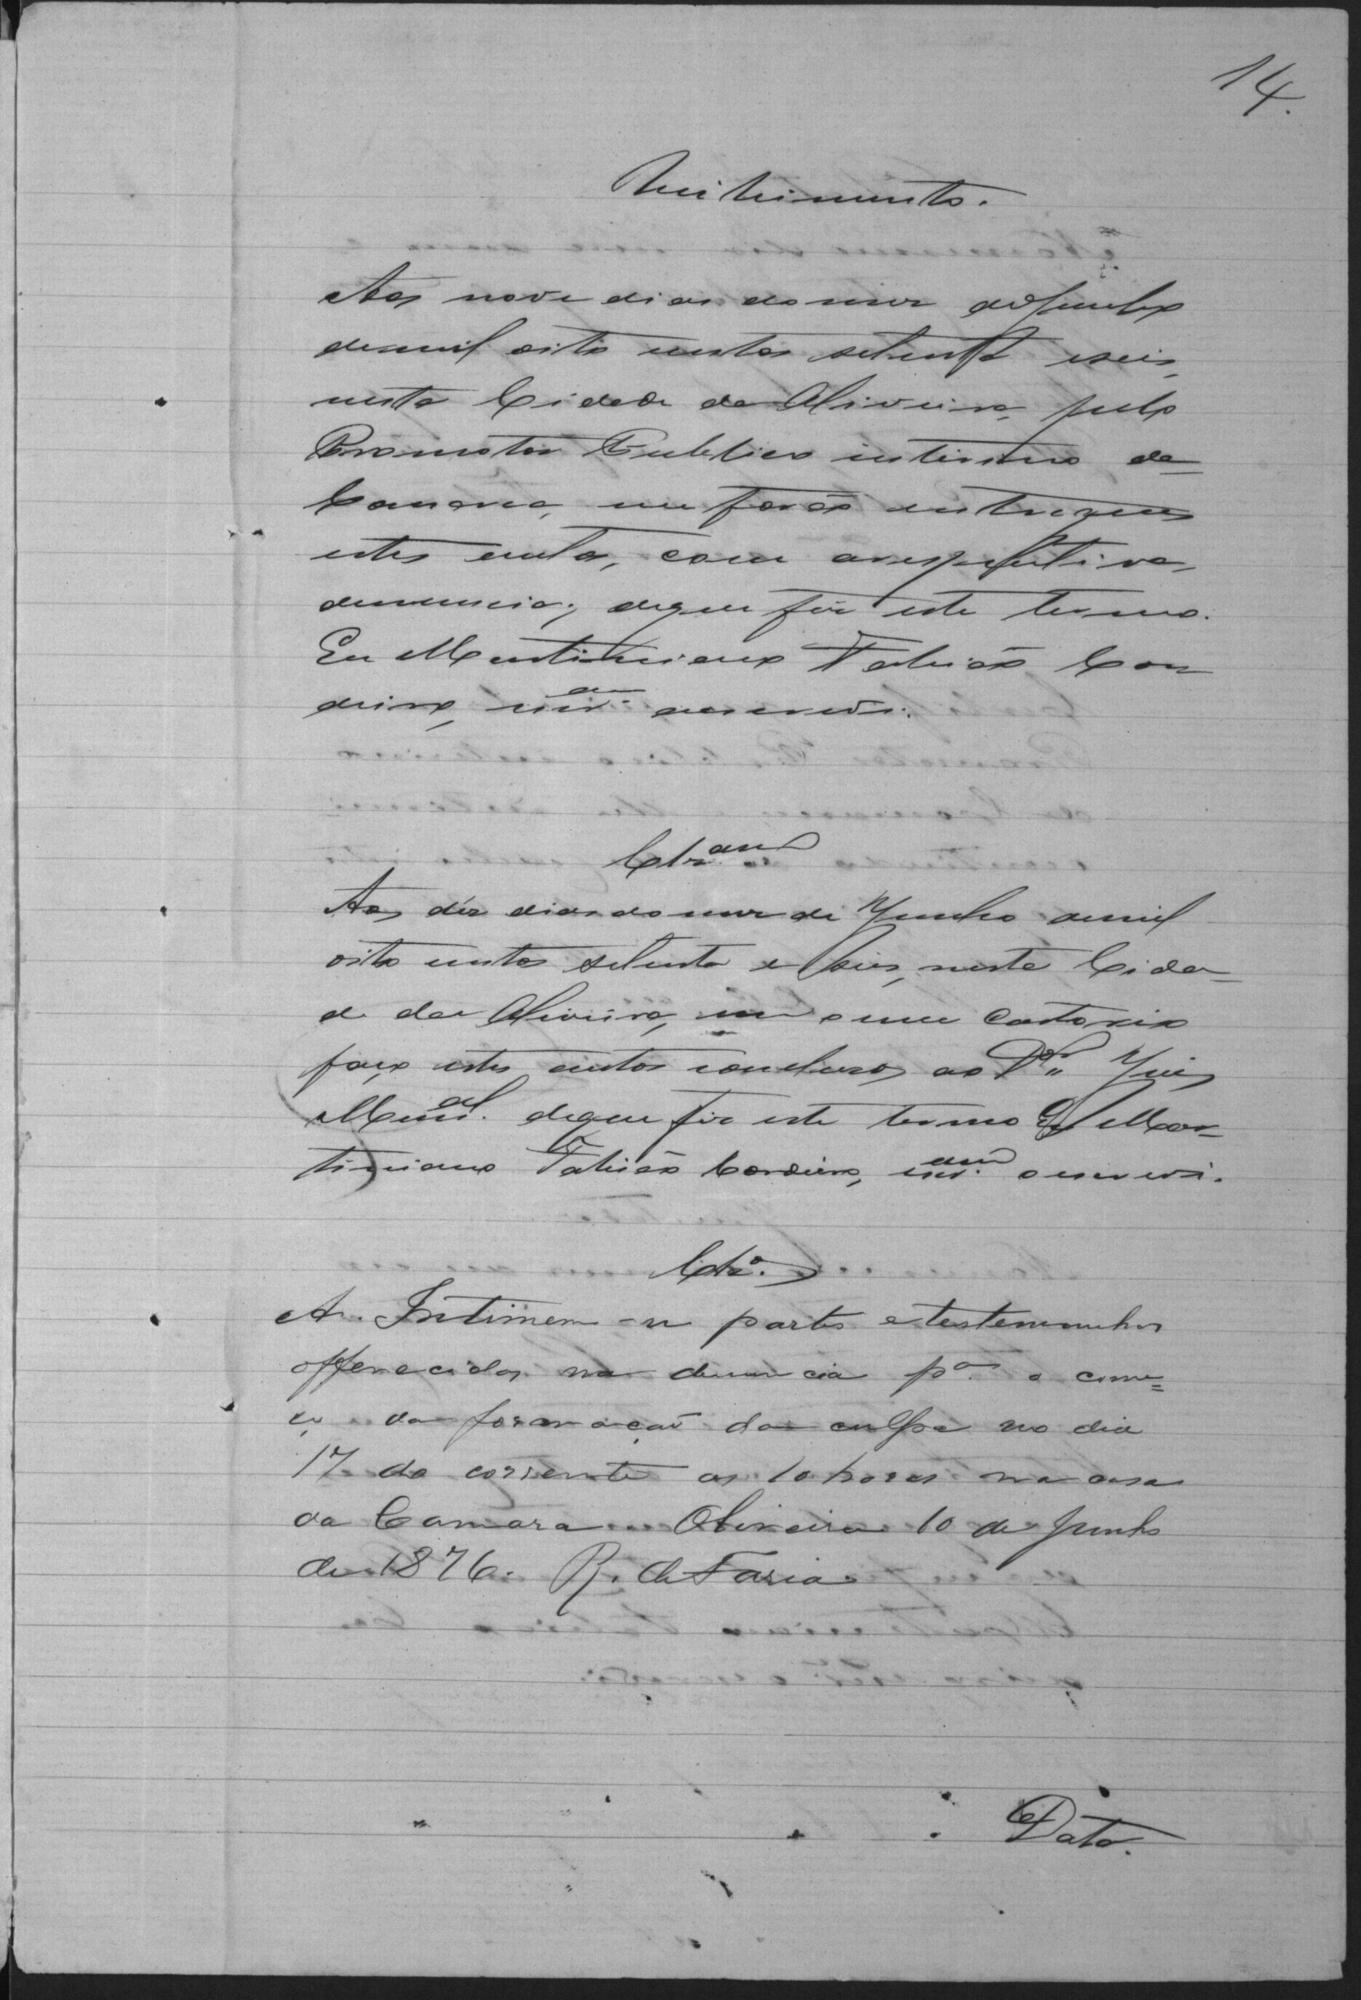 14.
Recebimento.
Aos nove dias do mez de Junho
de mil oito centos setenta e seis,
nesta Cidade da Oliveira, pelo
Promotor Publico interino da
Comarca, me forão entregues
estes autos, com a respectiva
denuncia; de que fiz este termo.
Eu Martiniano Fabião Cor
deiro, escr.am o escrevi.
Cls.am
Aos déz dias do mez de Junho de mil
oito centos setenta e seis, nesta Cida-
de da Oliveira, em o meu Cartorio
faço estes autos conclusos ao Dr. Juiz
Mun.al de que fiz este termo Eu Mar-
tiniano Fabião Cordeiro, escr.am o escrevi.
Clso.
A. Intimem-se partes e testemunhas
offerecidas na denuncia pa. o come=
ço da formação da culpa no dia
17 do corrente as 10 horas na casa
da Camara Oliveira 10 de Junho
de 1876. R. de Faria
Data.